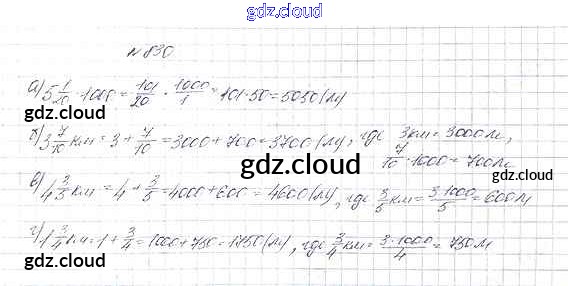 gdz.cloud
№ 830
gdz.cloud
а) 5 1/20 · 1000 = 101/20 · 1000/1 = 101 · 50 = 5050 (м)
gdz.cloud gdz.cloud
б) 3 7/10 км = 3 + 7/10 = 3000 + 700 = 3700 (м), где 3 км = 3000 м,
7/10 · 1000 = 700 м
gdz.cloud
gdz.cloud gdz.cloud
в) 4 3/5 км = 4 + 3/5 = 4000 + 600 = 4600 (м), где 3/5 км = 3·1000/5 = 600 м
г) 1 3/4 км = 1 + 3/4 = 1000 + 750 = 1750 (м), где 3/4 км = 3·1000/4 = 750 м
gdz.cloud gdz.cloud
gdz.cloud